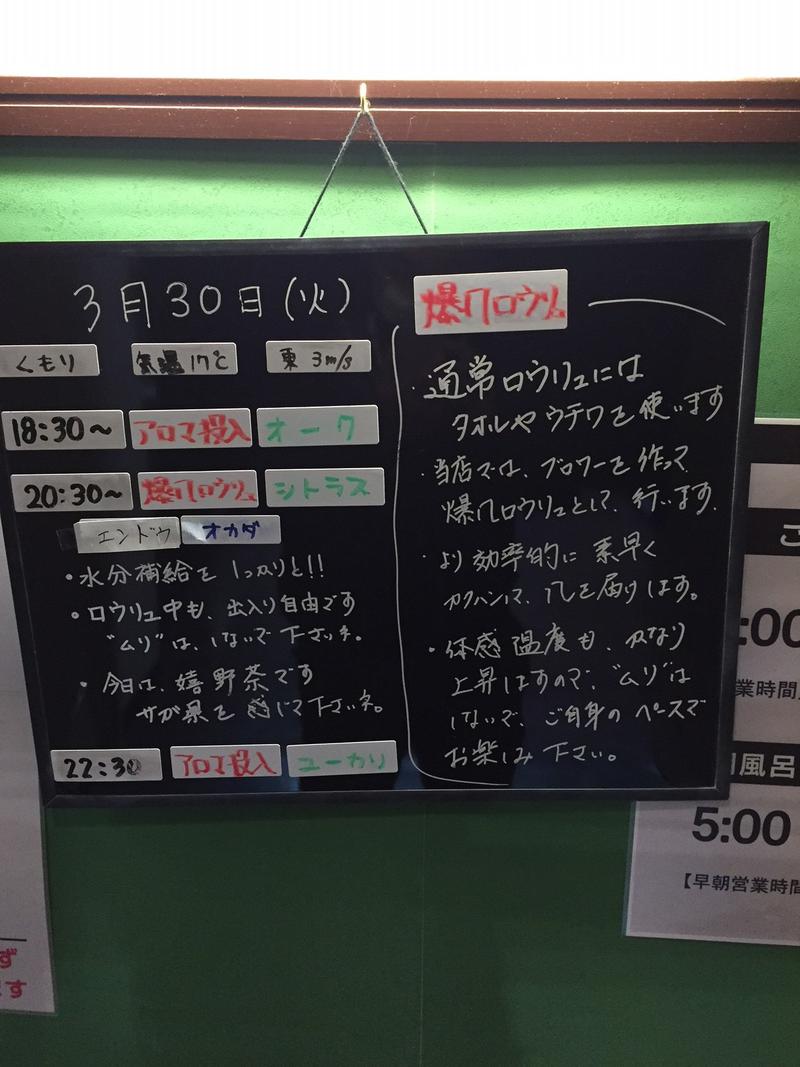 3月30日(火)
くもり 気温17℃ 東 3m/s
18:30～ アロマ投入 オーク
20:30～ 爆風ロウリュ シトラス
エンドウ オカダ
・水分補給をしっかりと!!
・ロウリュ中も、出入り自由です
"ムリ"は、しないで下さいネ。
・今日は、嬉野茶です
サガ県を感じて下さいネ。
22:30 アロマ投入 ユーカリ
爆風ロウリュ
・通常ロウリュには
タオルやウチワを使います
・当店では、ブロワーを使って
爆風ロウリュとして、行います。
・より効率的に素早く
カクハンして、風を届けします。
・体感温度も、かなり
上昇しますので、"ムリ"は
しないで、ご自身のペースで
お楽しみ下さい。
ご
:00
業時間
風呂
5:00
【早朝営業時間
ず
ます